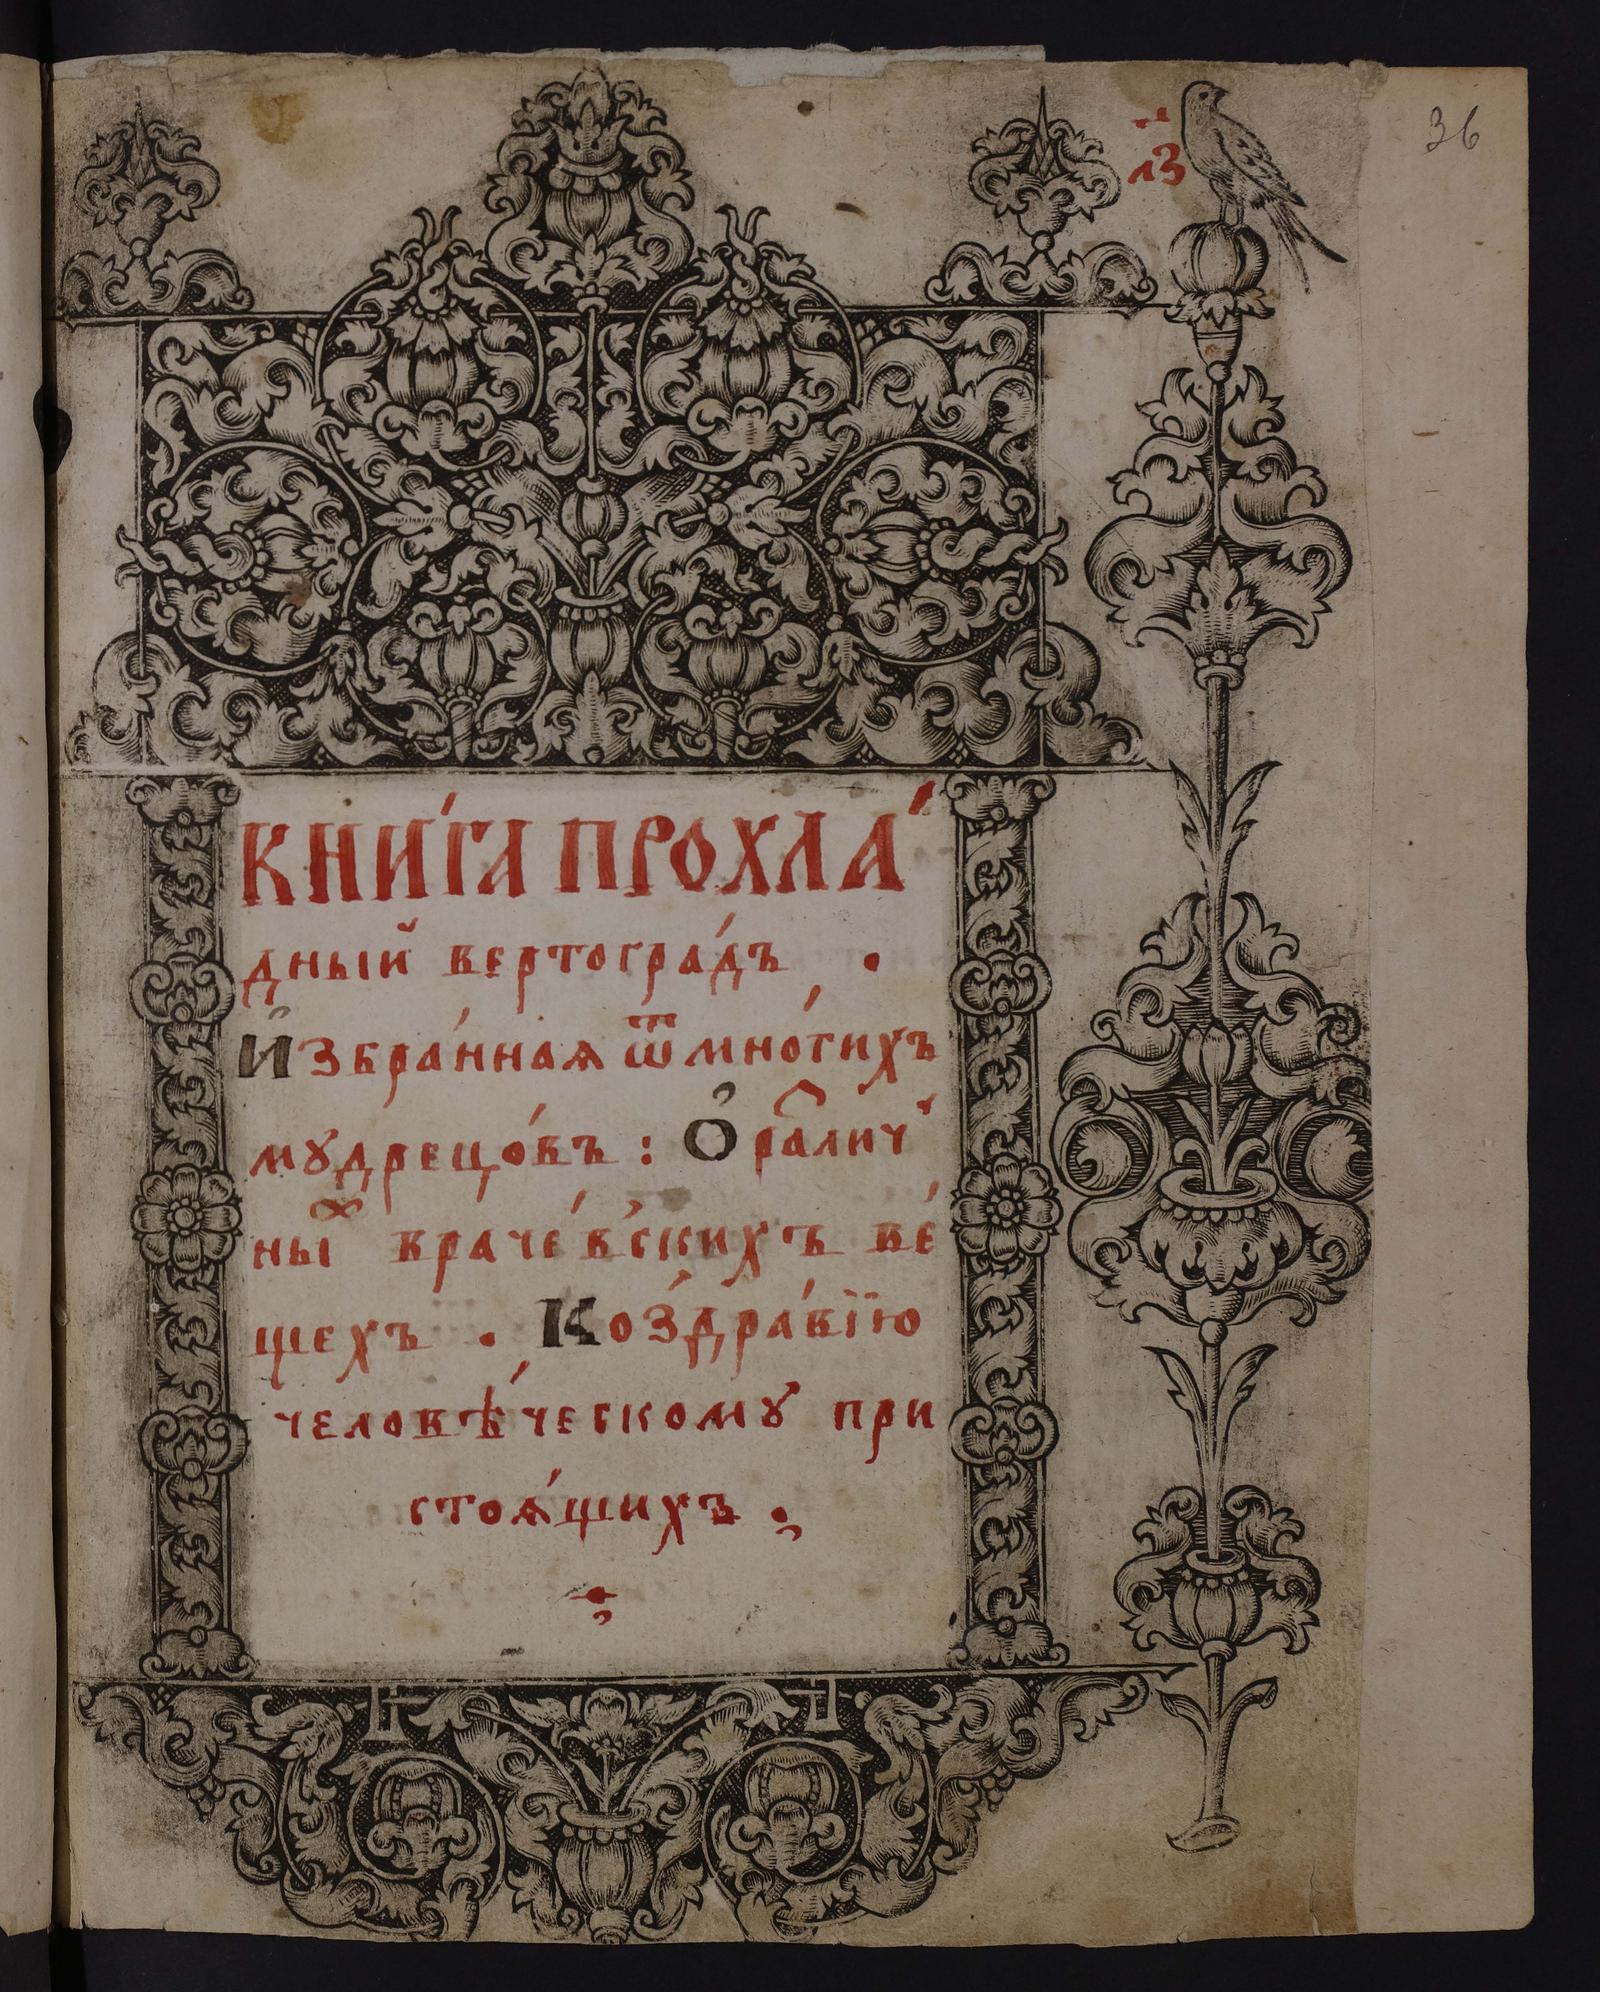 36
л҃з
КНИ́ГА ПРОХЛА́
дный вертогра́дъ .
И҆збра́нная ѿ мно́гихъ
мудрецо́въ : Ѻ҆ раⷥлич́
ныⷯ враче́вскихъ ве́
щехъ . Ко здра́вїю
человѣ́ческому при
стоѧ́щихъ .